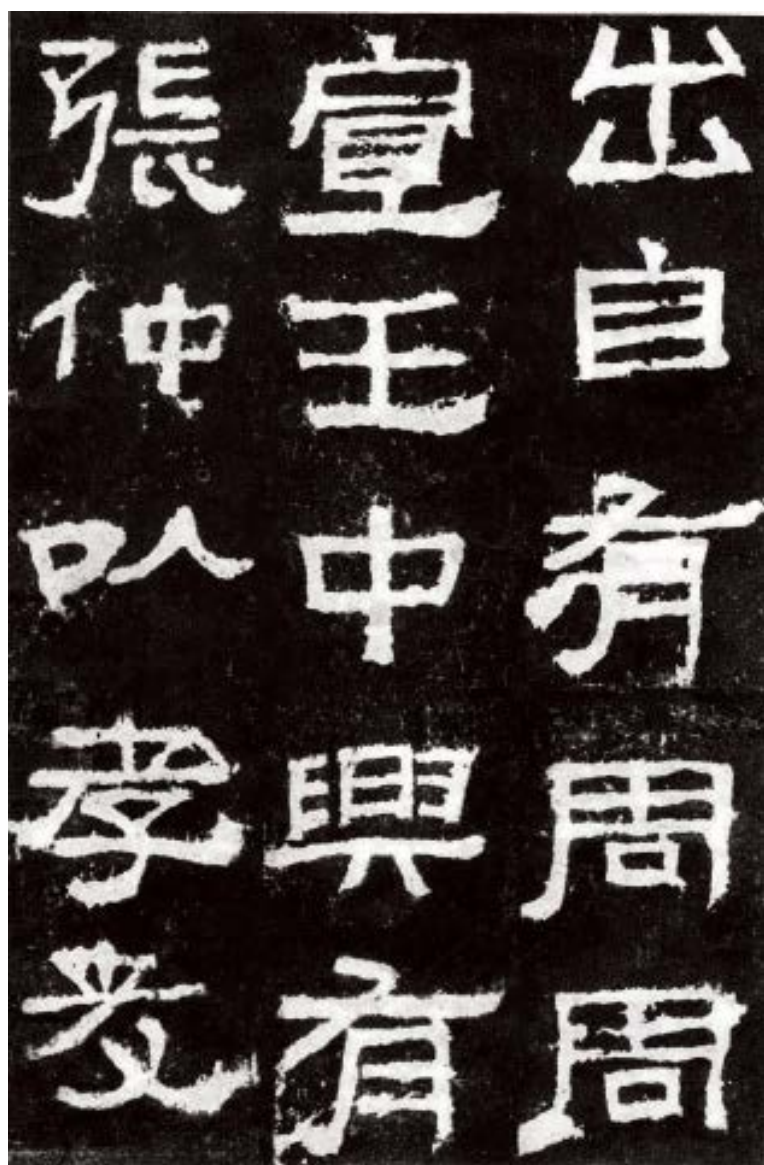 出自有周周
宣王中興有
張仲以孝友